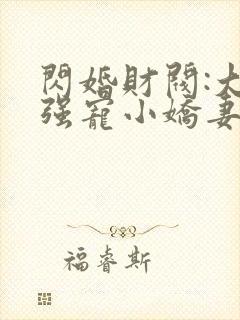 閃婚財閥:大
强寵小嬌妻
福睿斯